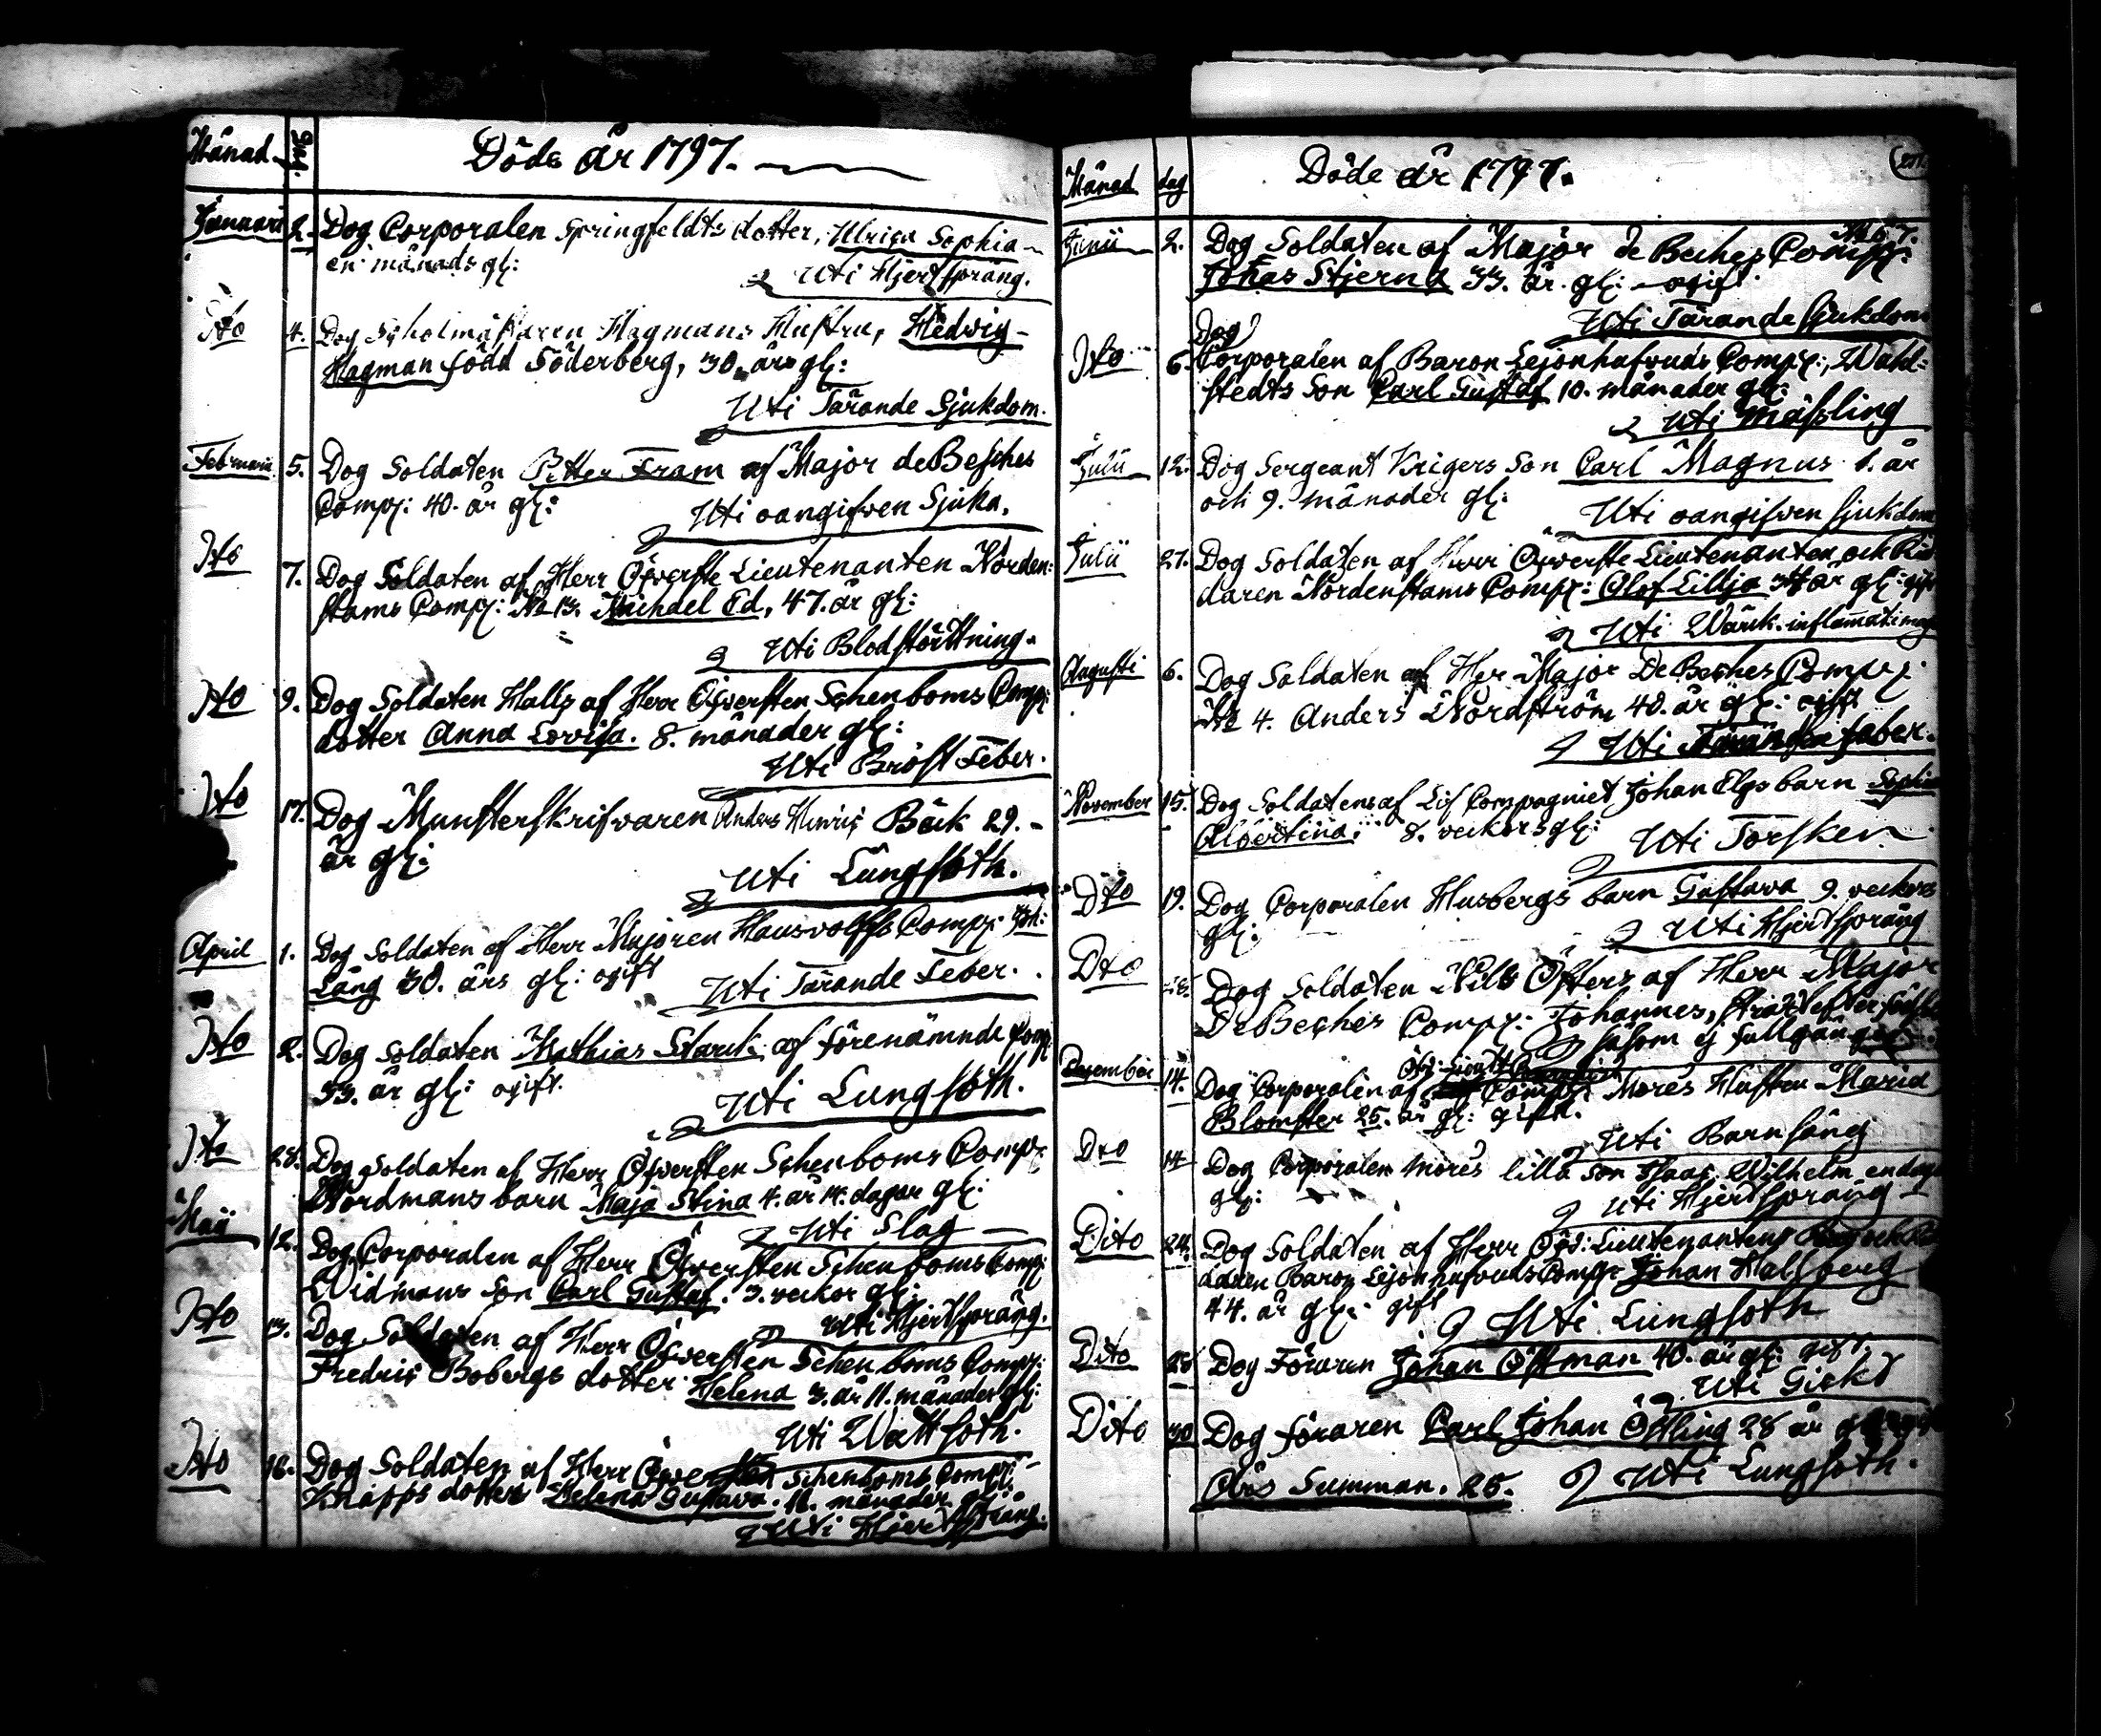 Månad dag.
Döde år 1797.
Januari 2. Dog Corporalen Springfeldts dotter, Ulrica Sophia
en månads gl:
Uti Hjertsprång.
Dto 4. Dog Hagmans Hustru, Hedvig
Hagman född Söderberg, 30. års gl:
Uti Tärande Sjukdom.
Februarii 5. Dog Soldaten Petter Fram af Major de Besches
Comp: 40. år gl:
Uti oangifven Sjuka.
Dto 7. Dog Soldaten af Herr Öfverste Lieutenanten Norden-
stams Comp: No 13. Michael Ed, 47. år gl:
Uti Blodstörttning.
Dto 9. Dog Soldaten Halls af Herr Öfversten Schenboms Comp:
dotter Anna Lovisa. 8. månader gl:
Uti Bröst Feber.
Dto 17. Dog Munsterskrifvaren Anders Hinric Bäck 29.
år gl:
Uti Lungsoth.
April 1. Dog Soldaten af Herr Majoren Hausvolffs Comp: Joh:
Lång 30. års gl: ogift
Uti Tärande Feber.
Dto 2. Dog Soldaten Mathias Starck af förenämnde Comp:
33. år gl: ogift.
Uti Lungsoth.
Dto 28. Dog Soldaten af Herr Öfversten Schenboms Comp:
Nordmans barn Maja Stina 4. år 14. dagar gl:
Uti Slag
Maij 12. Dog Corporalen af Herr Öfversten Schenboms Comp:
Widmans Son Carl Gustaf. 3. veckor gl:
Uti Hjertsprång.
Dto 13. Dog Soldaten af Herr Öfversten Schenboms Comp:
Fredric Bobergs dotter Helena 3. år 11. månader gl:
Uti Wattsoth.
Dto 16. Dog Soldaten af Herr Öfversten Schenboms Comp:
Knapps dotter Helena Gustava. 11. månader gl:
Uti Hjertsprång.
Månad dag
Döde år 1797.
Junii 2. Dog Soldaten af Major de Beches Comp: No 67.
Johas Stjerna 33. år. gl: ogift.
Uti Tärande sjukdom
Dog
Dto 6. Corporalen af Baron Lejonhufvuds Comp:, Wahl-
stedts Son Carl Gustaf 10. månader gl:
Uti Mässling
Julii 12. Dog Sergeant Krigers Son Carl Magnus 1. år
och 9. månader gl:
Uti oangifven sjukdom
Julii 27. Dog Soldaten af Herr Öfverste Lieutenanten och Rid
daren Nordenstams Comp: Olof Lillja år gl: gift
Uti Wärck. inflamation
Augusti 6. Dog Soldaten af Her Major De Beches Comp:
No 4. Anders Nordström 40. år gl: gift
Uti feber.
November 15. Dog Soldatens af Lif Compagniet Johan Elgs barn Sophia
Albertina. 8. veckors gl:
Uti Torsken.
Dto 19. Dog Corporalen Husbergs barn Gustava 9. veckors
gl:
Uti Hjertsprång
Dto Dog Soldaten Nils Östers af Herr Major
De Beches Comp: Johannes, strax efter
såsom ej fullgången
December 14. Dog Corporalen af Comp: Mores Hustru Maria
Blomster 25. år gl: gift.
Uti Barnsäng
Dto 14 Dog Corporalen Mores lilla Son Wilhelm en dags
gl:
Uti Hjertsprång
Dito 24. Dog Soldaten af Herr Öfv: Lieutenantens och
daren Baron Lejonhufvuds Comp: Johan Hallberg
44. år gl: gift
Uti Lungsoth
Dito 28 Dog Föraren Johan Öttman 40. år gl: gift.
Uti Gickt
Dito 30 Dog föraren Carl Johan Östling 28 år
Uti Lungsoth.
Års Summan. 25.